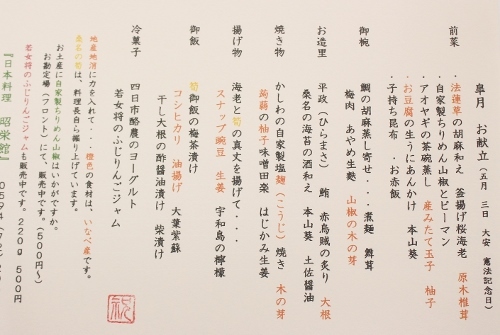 皐月　お献立（五月　三日　大安　憲法記念日）
前菜
・法蓮草の胡麻和え　釜揚げ桜海老　原木椎茸
・自家製ちりめん山椒とピーマン
・アオヤギの茶碗蒸し　産みたて玉子　柚子
・お豆腐の生うにあんかけ　本山葵
・子持ち昆布　・お赤飯
御椀
鯛の胡麻蒸し寄せ・・・煮麺　舞茸
梅肉　あやめ生麩　山椒の木の芽
お造里
平政（ひらまさ）　鮪　赤鳥賊の炙り　大根
桑名の海苔の酒和え　本山葵　土佐醤油
焼き物
かしわの自家製塩麹（こうじ）焼き　木の芽
蒟蒻の柚子味噌田楽　はじかみ生姜
揚げ物
海老と筍の真丈を揚げて・・・
スナップ豌豆　生姜　宇和島の檸檬
御飯
筍御飯の梅茶漬け
コシヒカリ　油揚げ　大葉紫蘇
干し大根の酢醤油漬け　柴漬け
冷菓子
四日市酪農のヨーグルト
若女将のふじりんごジャム
地産地消に力を入れて・・・橙色の食材は、いなべ産です。
桑名の筍は、料理長自ら掘り上げています。
お土産に自家製ちりめん山椒はいかがですか。
お勘定場（フロント）にて、販売中です。（５００円～）
若女将のふじりんごジャムも販売中です。２２０ｇ　５００円
『日本料理　昭栄館』
祝